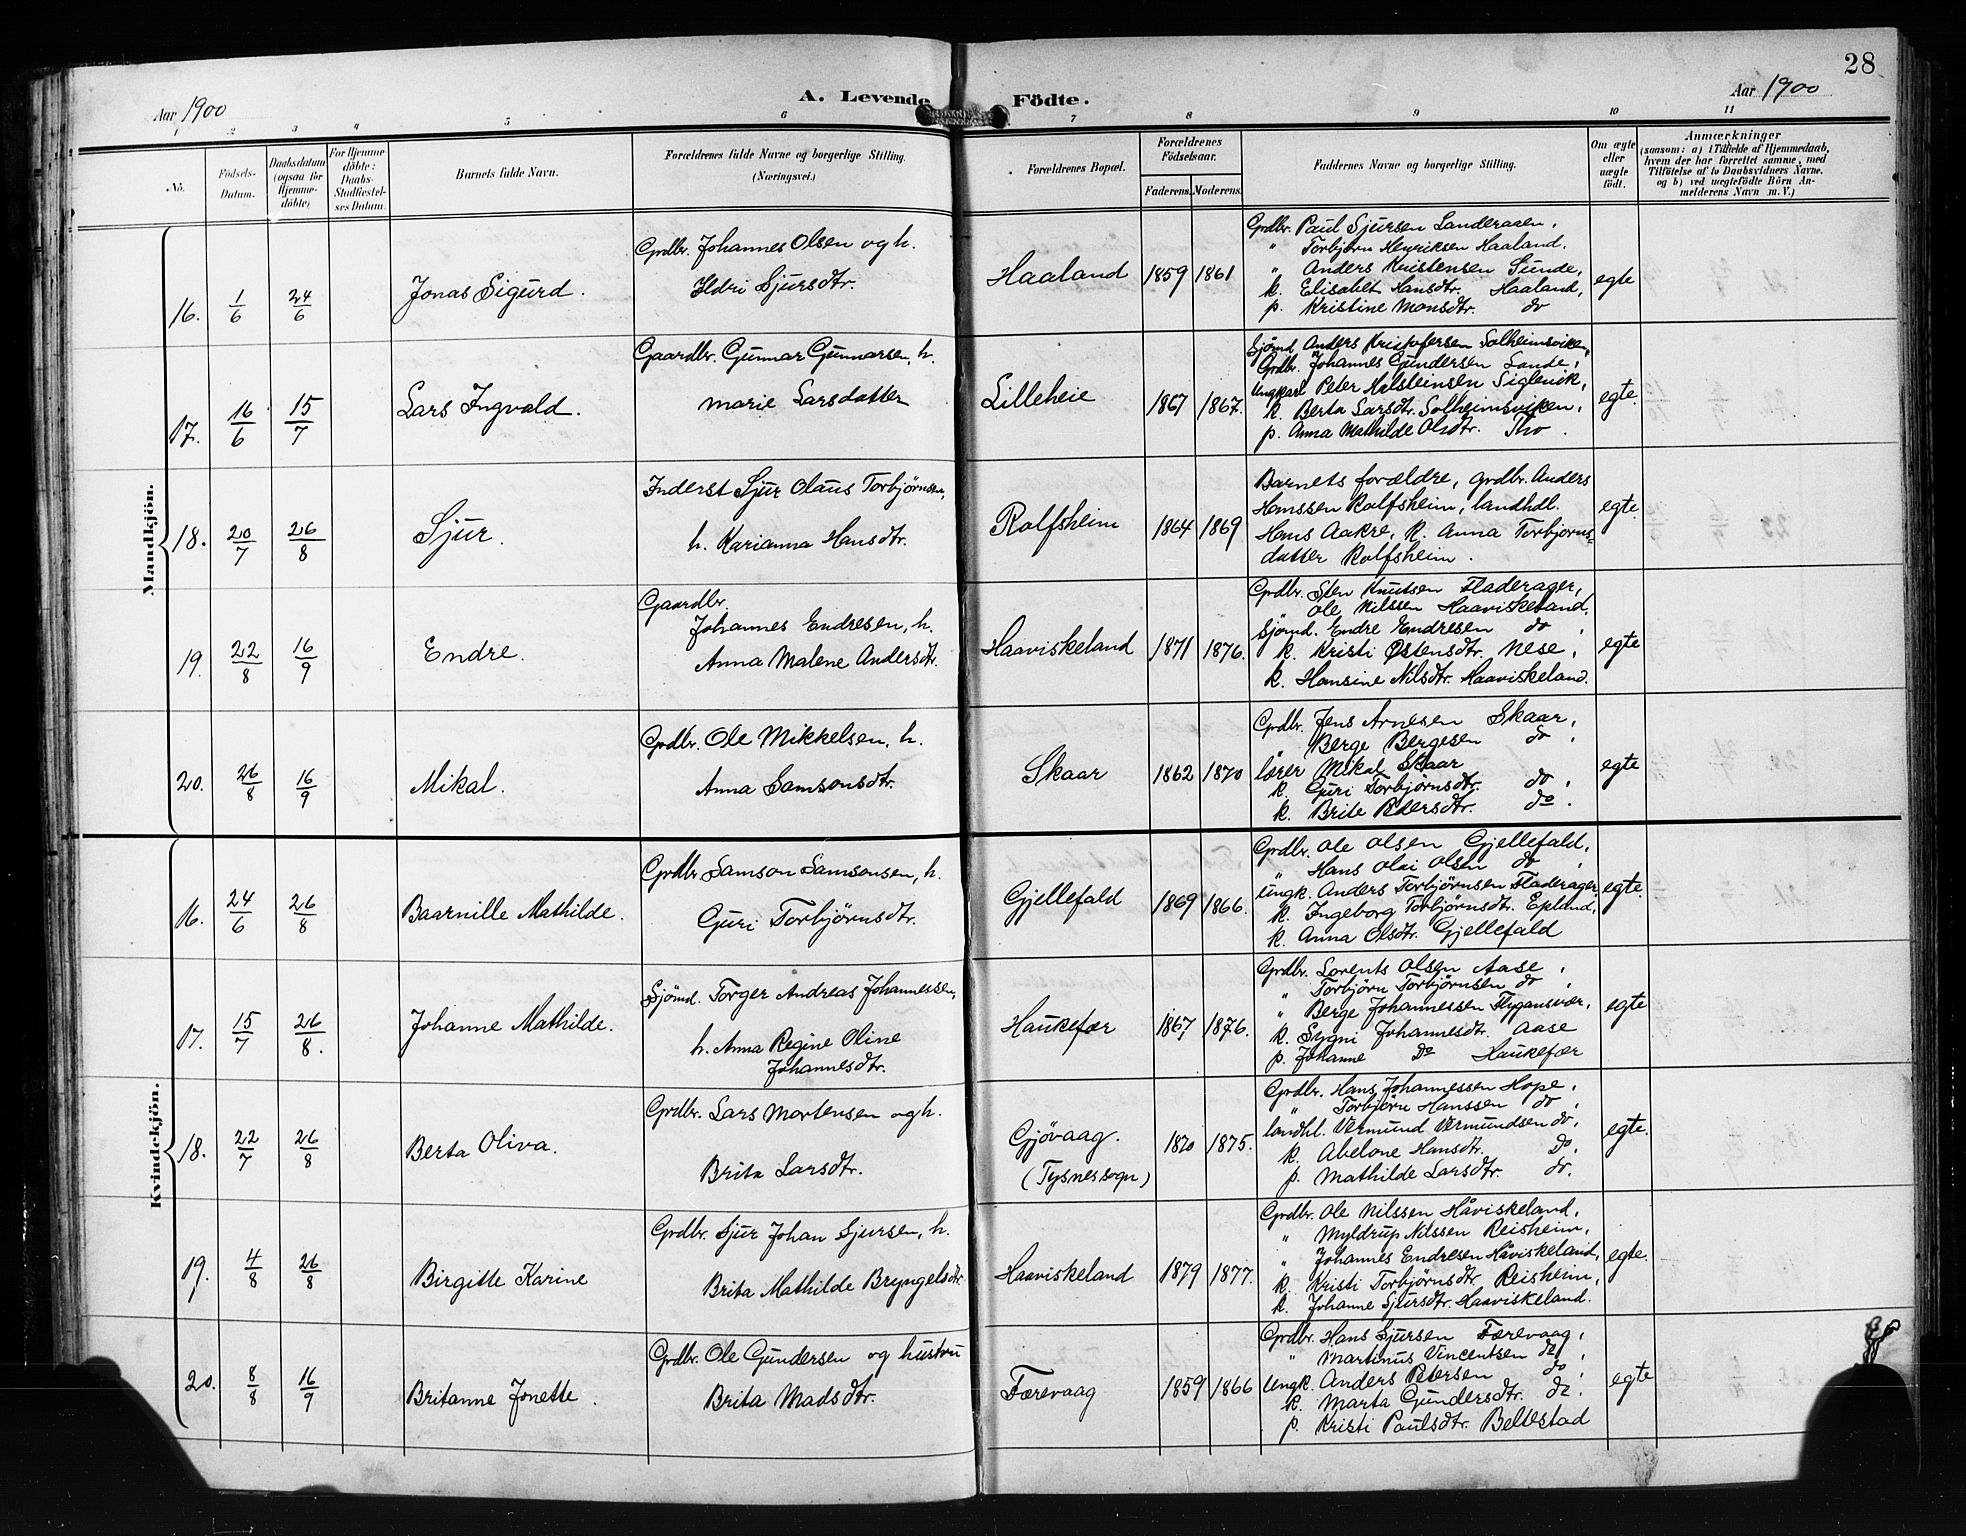 28
A. Levende Födte.
Aar 1900
Aar 1900
1 2 3 4 5 6 7 8 9 10 11
Nö.
Födsels-Datum.
Daabsdatum (ogsaa for Hjemme-döbte)
For Hjemme-döbte: Daabs-Stadfæstel-ses Datum.
Barnets fulde Navn.
Forældrenes fulde Navne og borgerlige Stilling.
(Næringsvei.)
Forældrenes Bopæl.
Forældrenes Födselsaar.
Faderens. Moderens.
Faddernes Navne og borgerlige Stilling.
Om ægte eller uægte født.
Anmærkninger
(saasom: a) i Tilfælde af Hjemmedaab,
hvem der har forrettet samme, med
Tilföielse af to Daabsvidners Navne.
og b) ved uægtefödte Börn An-
melderens Navn m. V.)
Mandkjön.
16. 1/6 24/6 Jonas Sigurd.
Grdbr. Johannes Olsen og h.
Ildri Sjursdtr.
Haaland 1859 1861
Grdbr. Paul Sjursen Sanderaaen,
" Torbjørn Henriksen Haaland,
" Anders Kristensen Sunde,
k. Elisabet Hansdtr. Haaland,
p. Kristine Monsdtr. do
egte
17. 16/6 15/7 Lars Ingvald.
Gaardbr. Gunnar Gunnarsen, h.
Marie Larsdatter
Lilleheie 1867 1867.
Sjömd. Anders Kristofersen Solheimsviken,
Grdbr. Johannes Gundersen Sande,
Ungkarl Peter Halsteinsen Siglevik,
k. Berta Larsdtr. Solheimsviken,
p. Anna Mathilde Olsdtr. Tho.
egte.
18. 20/7 26/8 Sjur.
Inderst Sjur Olaus Torbjørnsen,
h. Karianna Hansdtr.
Rolfsheim 1864 1869
Barnets forældre, grdbr. Anders
Hanssen Rolfsheim, landhdl.
Hans Aakre, k. Anna Torbjorns=
datter Rolfsheim.
egte.
19. 22/8 16/9 Endre.
Gaardbr.
Johannes Endresen, h.
Anna Malene Andersdtr.
Haaviskeland 1871 1876.
Grdbr. Sten Knutsen Fladerager,
Ole Nilssen Haaviskeland,
Sjömd. Endre Endresen do,
k. Kristi Østensdtr. Nese,
k. Hansine Nilsdtr. Haaviskeland.
egte
20. 26/8 16/9 Mikal.
Grdbr. Ole Mikkelsen, h.
Anna Samsonsdtr.
Skaar 1862 1870
Grdbr. Jens Arnesen Skaar,
" Berge Bergesen do,
lærer Mikal Skaar
k. Guri Torbjørnsdtr. do,
k. Brite Petersdtr. do.
egte
Kvindekjön.
16. 24/6 26/8 Baarnille Mathilde.
Grdbr Samson Samsonsen, h.
Guri Torbjörnsdtr.
Gjellefald 1869 1866.
Grdbr. Ole Olsen Gjellefald,
" Hans Olai Olsen do,
ungk. Anders Torbjørnsen Fladerager,
k. Ingeborg Torbjørnsdtr. Epland,
k. Anna Olsdtr. Gjellefald
egte.
17. 15/7 26/8. Johanne Mathilde.
Sjömd. Torger Andreas Johannessen,
h. Anna Regine Oline
Johannesdtr.
Haukefær 1867 1876.
Grdbr. Lorents Olsen Aase,
" Torbjörn Torbjörnsen do,
" Berge Johannessen Flygansvær,
k. Sygni Johannesdtr. Aase
p. Johanne Do Haukefær
egte
18. 22/7 26/8 Berta Oliva.
Grdbr. Lars Mortensen og h.
Brita Larsdtr.
Gjövaag.
(Tysnes sogn)
1870 1875.
Grdbr. Hans Johannessen Hope,
" Torbjörn Hanssen do,
landhl. Vermund Vermundsen do,
k. Abelone Hansdtr. Do.
p. Mathilde Larsdtr do.
egte.
19. 4/8 26/8 Birgitte Karine
Grdbr. Sjur Johan Sjursen, h.
Brita Mathilde Bryngelsdtr
Haaviskeland 1879 1877.
Grdbr. Ole Nilssen Håviskeland,
" Myldrup Nilssen Reisheim,
" Johannes Endresen Håviskeland,
k. Kristi Torbjörnsdtr. Reisheim,
k. Johanne Sjursdtr. Haaviskeland.
egte.
20. 8/8 16/9 Britanne Jonette.
Grdbr. Ole Gundersen og hustru
Brita Madsdtr.
Færevaag 1859 1866
Grdbr. Hans Sjursen Færevaag,
" Martinus Vincentsen do,
Ungk. Anders Petersen do
k. Marta Gundersdtr. do.
p. Kristi Paulsdtr. Beltestad
egte